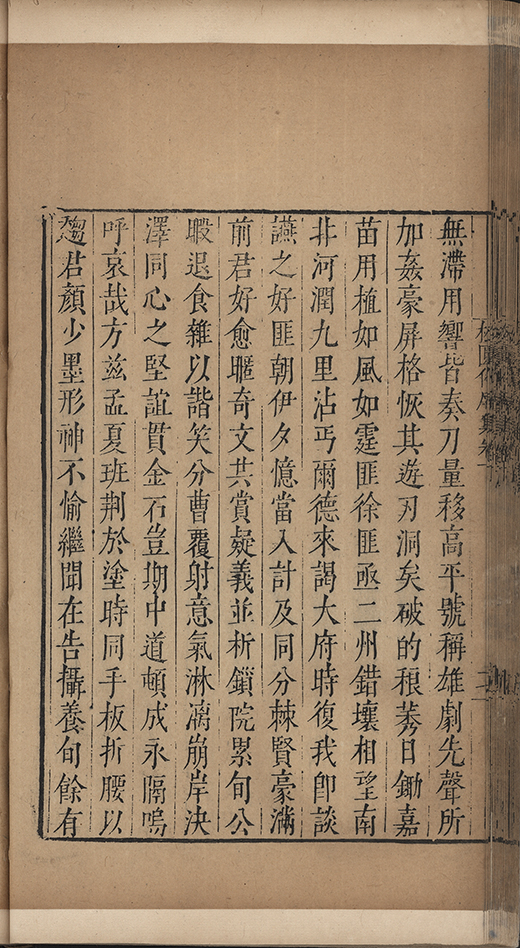 無滯用響皆奏刀量移高平號稱雄劇先聲所
加姦豪屏格恢其遊刃洞矣破的稂莠日鋤嘉
苗用植如風如霆匪徐匪亟二州錯壤相望南
北河潤九里沾丐爾德來謁大府時復我卽談
讌之好匪朝伊夕憶當入計及同分棘賢豪滿
前君好愈暱奇文共賞疑義並析鎖院累旬公
暇退食雜以諧笑分曹覆射意氣淋漓崩岸決
澤同心之堅誼貫金石豈期中道頓成永隔嗚
呼哀哉方兹孟夏班荆於塗時同手板折腰以
趨君顏少墨形神不愉繼聞在告攝養旬餘有